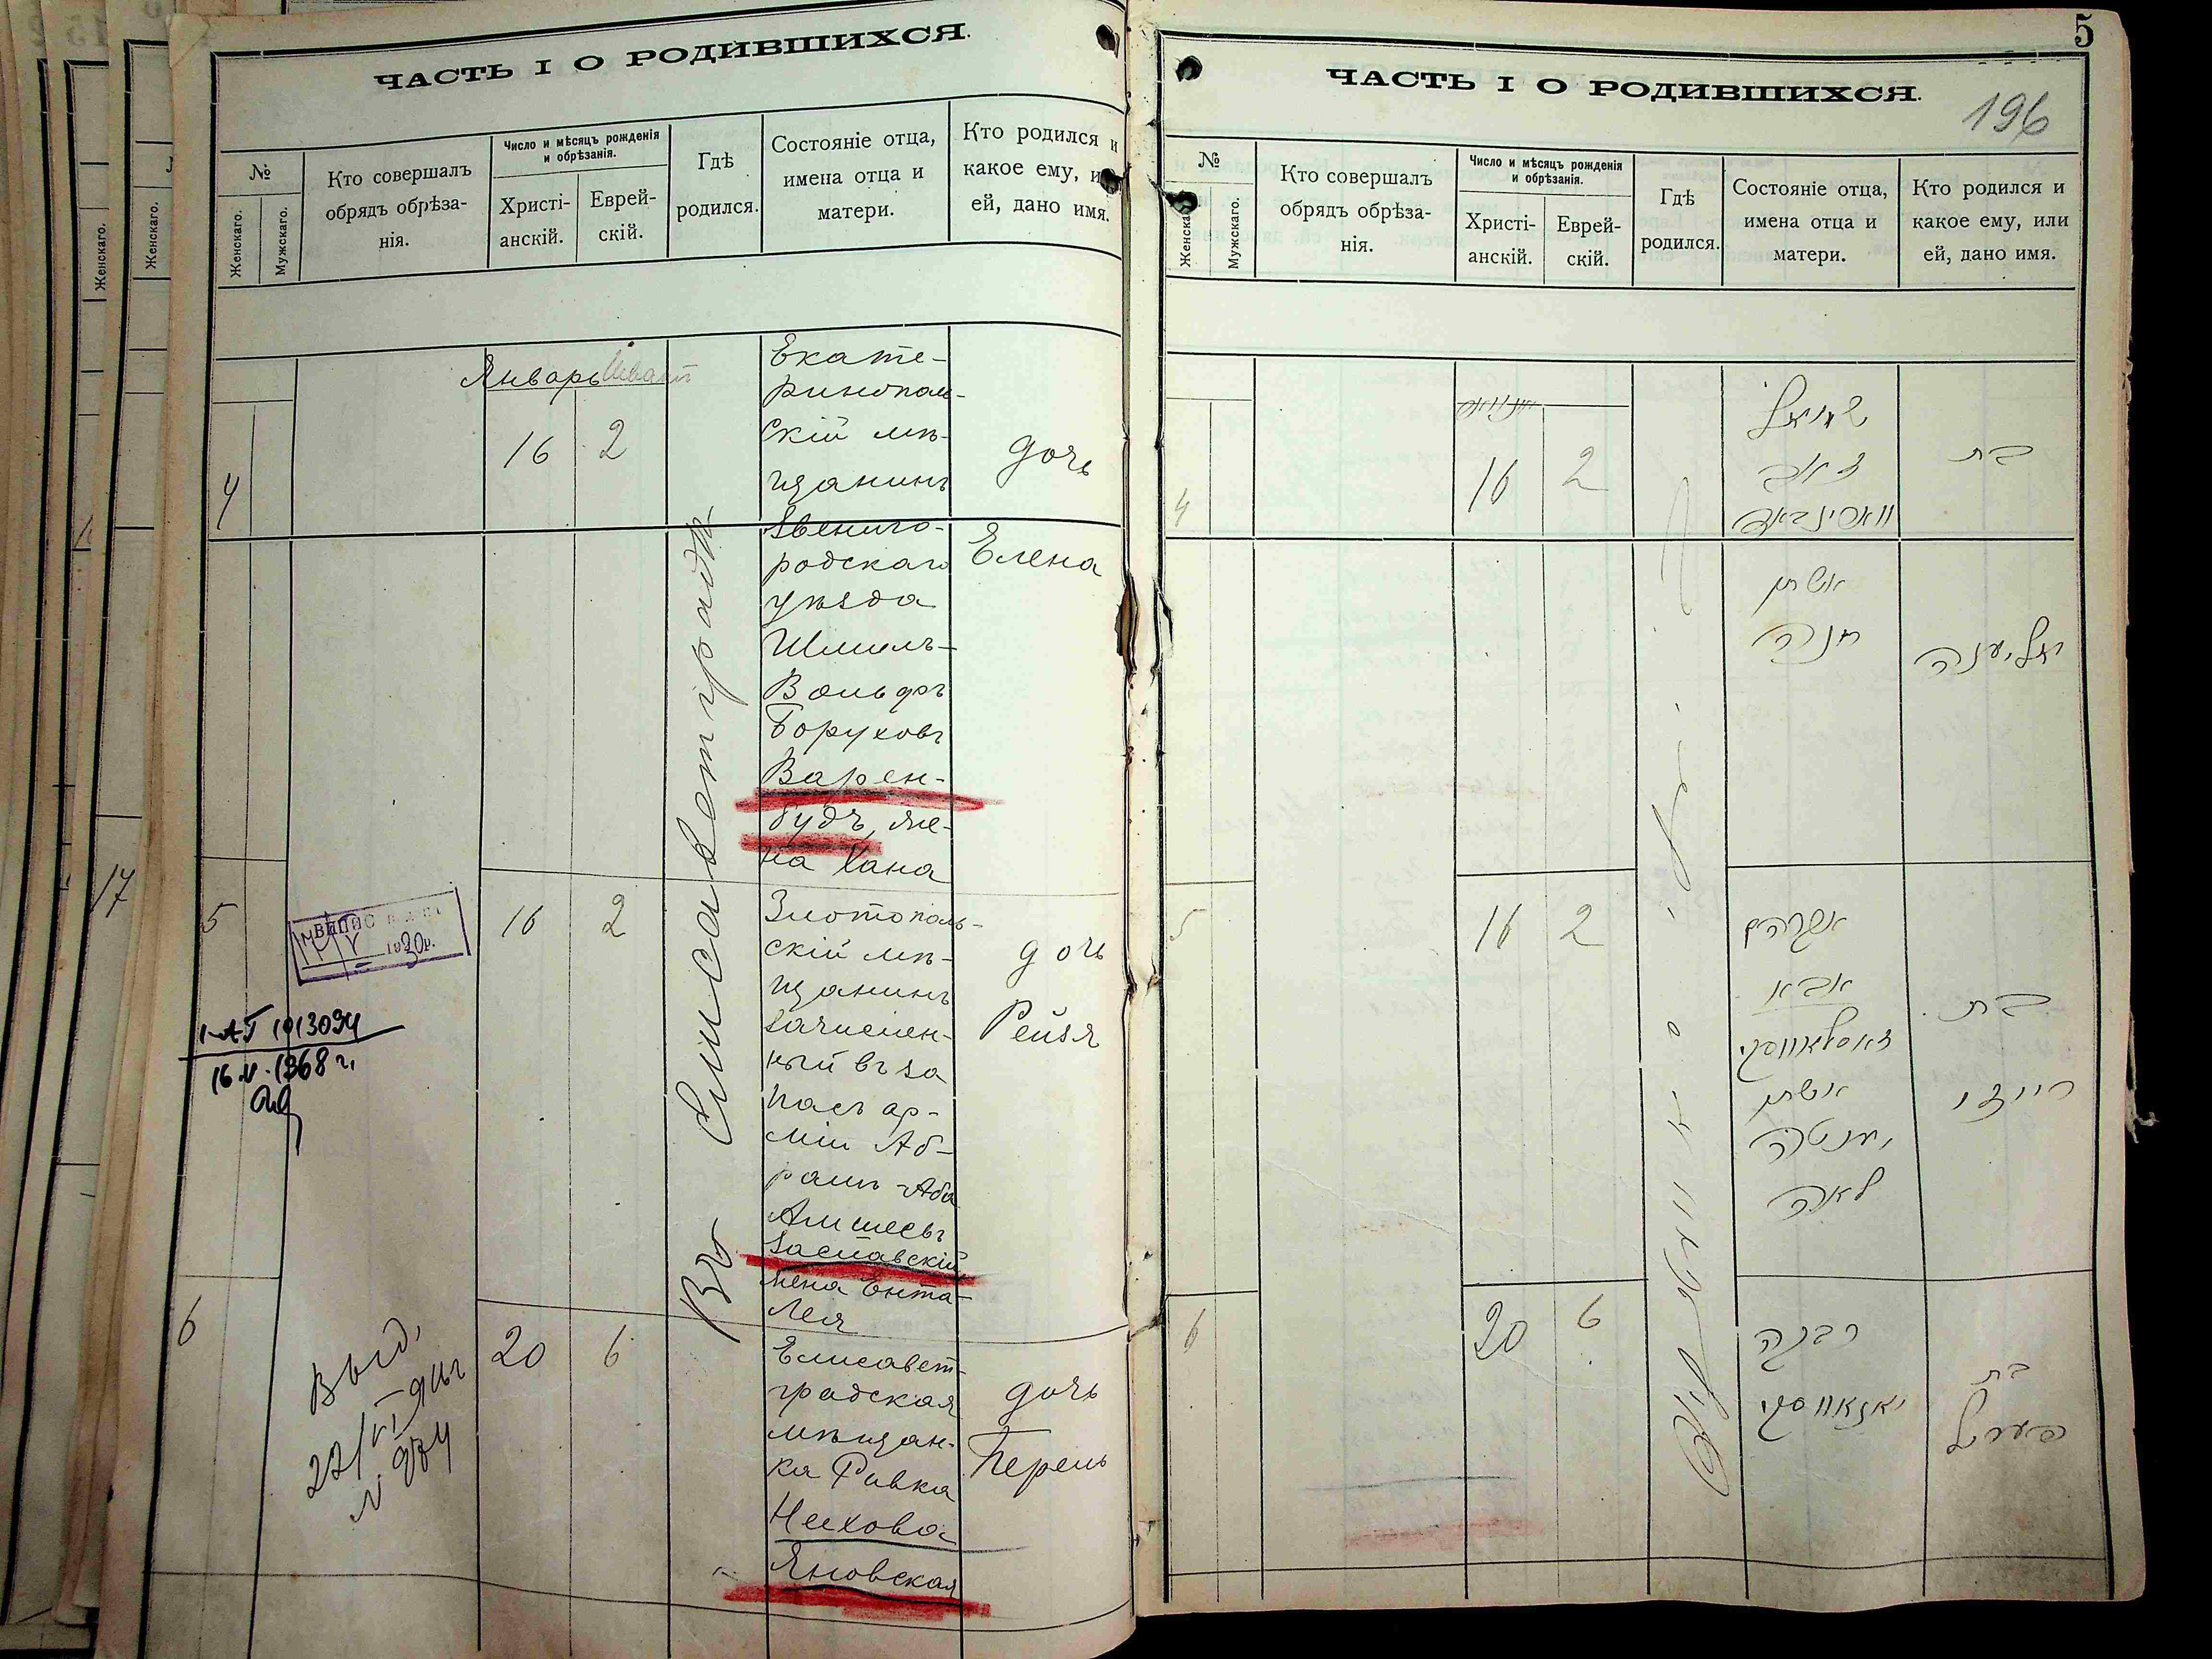 ЧАСТЬ I О РОДИВШИХСЯ.
№
Женскаго.
Мужскаго.
Кто совершалъ
обрядъ обрѣза-
нія.
Число и мѣсяцъ рожденія
и обрѣзанія.
Христі-
анскій.
Еврей-
скій.
Гдѣ
родился.
Состояніе отца,
имена отца и
матери.
Кто родился и
какое ему, и
ей, дано имя.
Январь Шватъ
4
16
2
Въ Елисаветградѣ
Екате-
ринополь-
скій мѣ-
щанинъ
Звениго-
родскаго
уѣзда
Шмиль-
Вольфъ
Боруховъ
Варен-
будъ, же-
на Хана
дочь
Елена
5
1930р.
I-АГ 1013094
16.V.1968 г.
16
2
Златополь-
скій мѣ-
щанинъ
зачислен-
ный въ за
пасъ ар-
міи Аб-
рамъ-Аба
Заславскій
жена Ента-
Лея
дочь
Рейзя
6
Выд.
20
6
Елисавет-
градская
мѣщан-
ка Ривка
Яновская
дочь
Перель
5
196
ЧАСТЬ I О РОДИВШИХСЯ.
№
Женскаго.
Мужскаго.
Кто совершалъ
обрядъ обрѣза-
нія.
Число и мѣсяцъ рожденія
и обрѣзанія.
Христі-
анскій.
Еврей-
скій.
Гдѣ
родился.
Состояніе отца,
имена отца и
матери.
Кто родился и
какое ему, или
ей, дано имя.
4
16
2
שמואל
זאב
אשתו
חנה
בת
יעליענה
5
16
2
אברהם
אבא
זאסלאווסקי
אשתו
יענטה
לאה
בת
רייזי
6
20
6
רבקה
יאנאווסקי
בת
פערל
17